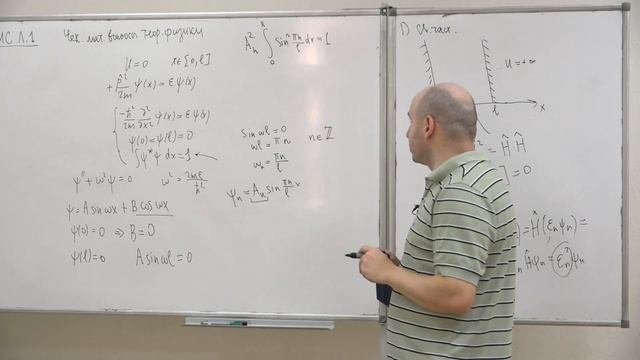 МС Л.1
Чек. мат. вопросы теор. физики
U=0 x∈[0,l]
+ p̂²/2m ψ(x) = εψ(x)
-ħ²/2m ∂²/∂x² ψ(x) = εψ(x)
ψ(0)=ψ(l)=0
∫ψ*ψ dx=1 ←
ψ''+ω²ψ=0 ω²=2mε/ħ²
ψ=A sin ωx + B cos ωx
ψ(0)=0 ⇒ B=0
ψ(l)=0 A sin ωl=0
A²ₙ ∫₀ˡ sin² πn/l x dx=1
sin ωl=0
ωl=πn n∈ℤ
ωₙ=πn/l
ψₙ=Aₙ sin πn/l x
1)
част.
U=+∞
l x
²= Ĥ Ĥ
]=0
)=Ĥ(εₙψₙ)=
ₙĤψₙ=εₙ²ψₙ